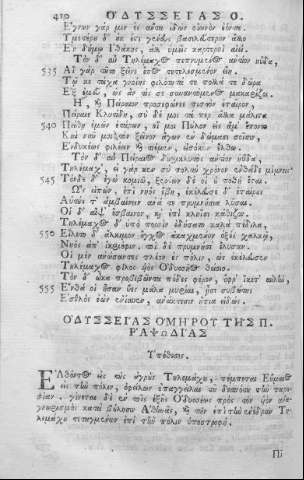 420 ὈΔΥΣΣΕΊΑΣ Ο.
Ἔγνων γάρ μιν
Ὑμετέρου δ᾽ οὐκ ἔστι γένευς βασιλεύτερον ἄλλο
Ἐν δήμῳ Ἰθάκης, ἀλλ᾽ ὑμεῖς καρτεροὶ αἰεί.
Τὸν δ᾽ αὖ Τηλέμαχος πεπνυμένος ἀντίον ηὔδα,
535 Αἲ γὰρ τοῦτο ξεῖνε ἔπος τετελεσμένον εἴη.
Τῷ κε τάχα γνοίης φιλότητά τε πολλά τε δῶρα
Ἐξ ἐμεῦ, ὡς ἄν τίς σε συναντόμενος μακαρίζοι.
Ἦ, καὶ Πείραιον προσεφώνεε πιστὸν ἑταῖρον,
Πείραιε Κλυτίδη, σὺ δέ μοι τά περ ἄλλα μάλιστα
540 Πείθῃ ἐμῶν ἑτάρων, οἵ μοι Πύλον εἰς ἅμ᾽ ἕποντο
Καὶ νῦν μοι τὸν ξεῖνον ἄγων ἐν δώμασι σοῖσιν
Ἐνδυκέως φιλέειν καὶ τιέμεν, εἰσόκεν ἔλθω.
Τὸν δ᾽ αὖ Πείραιος δουρικλυτὸς ἀντίον ηὔδα,
Τηλέμαχ᾽, εἰ γάρ κεν σὺ πολὺν χρόνον ἐνθάδε μίμνοις
545 Τόνδε δ᾽ ἐγὼ κομιῶ, ξενίων δέ οἱ οὐ ποθὴ ἔσται.
Ὣς εἰπὼν, ἐπὶ νηὸς ἔβη, ἐκέλευσε δ᾽ ἑταίρους
Αὐτούς τ᾽ ἀμβαίνειν ἀνά τε πρυμνήσια λῦσαι.
Οἱ δ᾽ αἶψ᾽ εἴσβαινον, καὶ ἐπὶ κληῖσι κάθιζον.
Τηλέμαχος δ᾽ ὑπὸ ποσσὶν ἐδήσατο καλὰ πέδιλα,
550 Εἵλετο δ᾽ ἄλκιμον ἔγχος ἀκαχμένον ὀξέϊ χαλκῷ,
Νηὸς ἀπ᾽ ἰκριόφιν· τοὶ δὲ πρυμνήσι᾽ ἔλυσαν.
Οἱ μὲν ἀνώσαντες πλέον ἐς πόλιν, ὡς ἐκέλευσε
Τηλέμαχος φίλος υἱὸς Ὀδυσσῆος θείοιο.
Τὸν δ᾽ ὦκα προβιβῶντα πόδες φέρον, ὄφρ᾽ ἵκετ᾽ αὐλὴν,
555 Ἔνθα οἱ ἦσαν ὕες μάλα μυρίαι, ᾗσι συβώτης
Ἐσθλὸς ἐὼν ἐνίαυεν, ἀνάκτεσιν ἤπια εἰδώς.
ὈΔΥΣΣΕΊΑΣ ὉΜΉΡΟΥ ΤΗ͂Σ Π.
ῬΑΨΩΔΊΑΣ
Ὑπόθεσις.
Ἐλθόντος εἰς τοὺς ἀγροὺς Τηλεμάχου, πέμπεται Εὔμαιος
εἰς τὴν πόλιν, ὀφείλων ἐπαγγεῖλαι τῇ
γίνεται δὲ καὶ τοῦ Ὀδυσσέως πρὸς τὸν υἱὸν
κατὰ βούλησιν Ἀθηνᾶς, καὶ
ἐπὶ τὴν πόλιν ὑποστροφή.
Πῖ